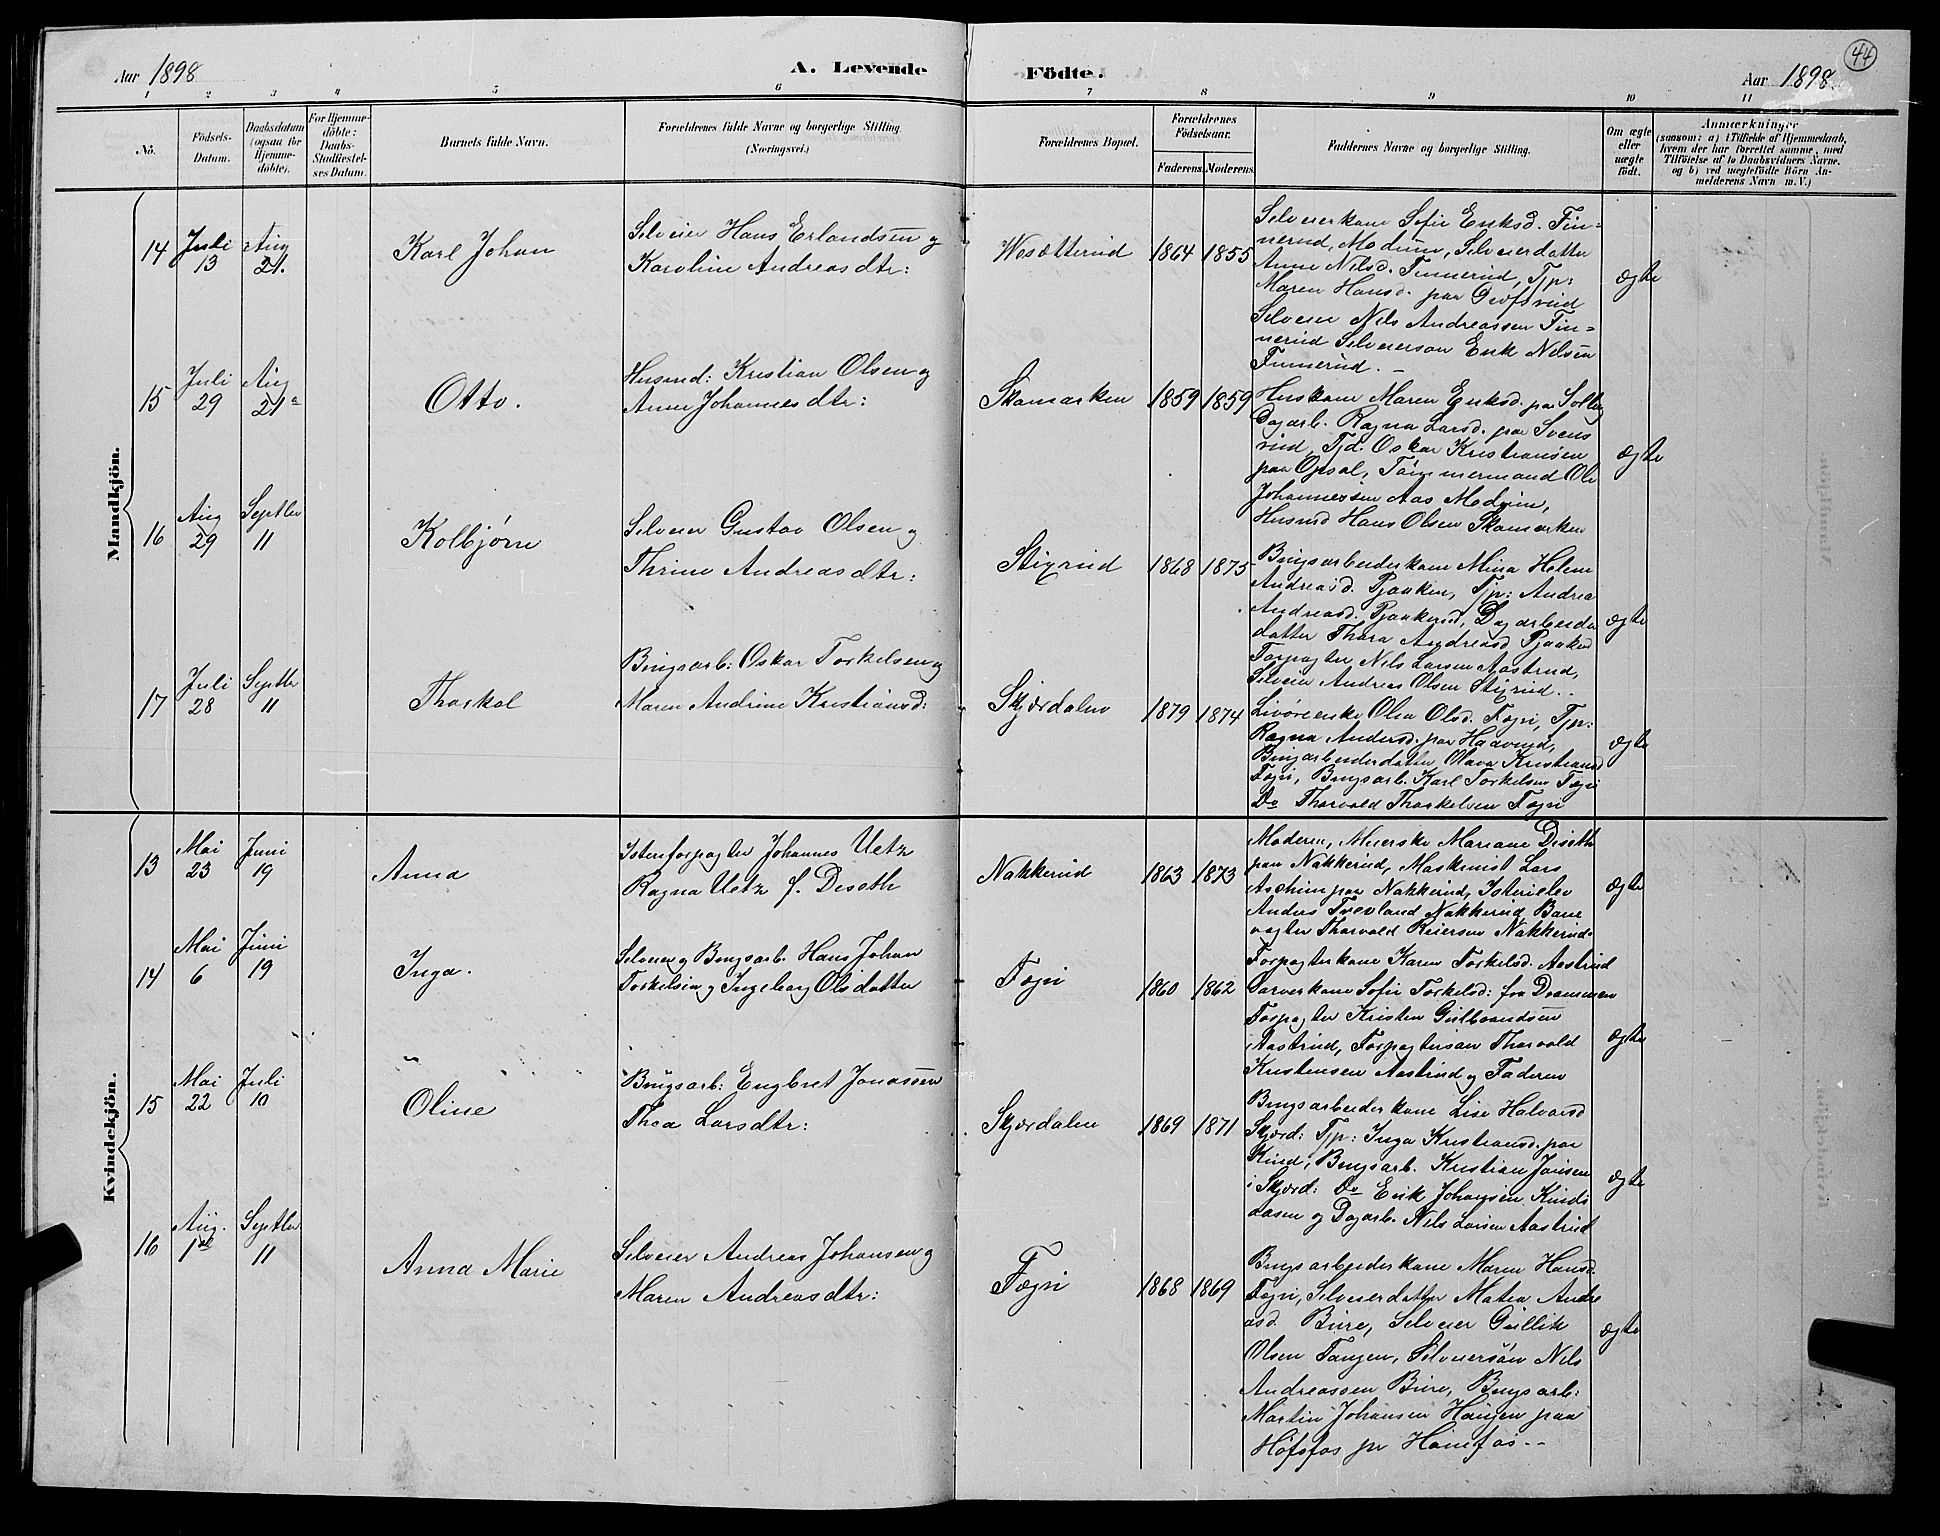 44
Aar 1898
A. Levende
Födte.
Aar 1898
1 2 3 4 5 6 7 8 9 10 11
Nô.
Födsels-
Datum.
Daabsdatum
(ogsaa for
Hjemme-
döbte).
For Hjemme-
döbte:
Daabs-
Stadfæstel-
ses Datum.
Barnets fulde Navn.
Forældrenes fulde Navne og borgerlige Stilling
(Næringsvei.)
Forældrenes Bopæl.
Forældrenes
Födselsaar.
Faderens. Moderens.
Faddernes Navne og borgerlige Stilling.
Om ægte
eller
uægte
födt.
Anmærkninger
(saasom: a) i Tilfælde af Hjemmedaab,
hvem der har forrettet samme, med
Tilföielse af to Daabsvidners Navne.
og b) ved uægtefödte Börn An-
melderens Navn m. V.)
Mandkjön.
14
Juli
13
Aug
21.
Karl Johan
Selveier Hans Erlandsen og
Karoline Andreasdtr:
Wesætterud
1864
1855
Selveierkone Sofie Eriksd. Fin=
nerud, Modum, Selveierdatter
Anne Nilsd. Finnerud, Tjp:
Maren Hansd. paa
Selveier Nils Andreassen Fin=
nerud Selveierson Erik Nilsen
Finnerud. –
ægte
15
Juli
29
Aug
21
Otto.
Husmd: Kristian Olsen og
Anne Johannesdtr:
Skamarken
1859
1859
Huskone Maren Eriksd. paa Solberg
Dagarb. Ragna Larsd. paa Svens
rud, Tjd. Oskar Kristiansen
paa Opsal, Tömmermand Ole
Johannessen Aas Modum,
Husmd Hans Olsen Skamarken
ægte
16
Aug
29
Septbr
11
Kolbjørn
Selveier Gustav Olsen og
Thrine Andreasdtr:
Stixrud
1868
1875
Brugsarbeiderkone Mina Helene
Andreasd. Pjaaken, Tjp: Andrea
Andreasd. Pjaakerud, Dagarbeider
datter Thora Andreasd Pjaaken
Forpagter Nils Larsen Aastrud,
Selveier Andreas Olsen Stixrud. –
ægte
17
Juli
28
Septbr
11
Thorkel
Brugsarb: Oskar Torkelsen og
Maren Andrine Kristiansd:
Skjærdalen
1879
1874
Olea Olsd. Fægri, Tjp:
Ragna Andersd. paa Haavrud,
Brugarbeiderdatter Olava Kristiansd
Fægri, Brugsarb. Karl Torkelsen Fægri
Do Thorvald Thorkelsen Fægri
ægte
Kvindekjön.
13
Mai
23
Juni
19
Anna
Isterieforpagter Johannes Uetz
Ragna Uetz f. Diseth
Nakkerud
1863
1873
Moderen, Meierske Mariane Diseth
paa Nakkerud, Maskinist Lars
Aschim paa Nakkerud, Isterielev
Anders Trevland Nakkerud, Bane
vogter Thorvald Reiersen Nakkerud.
ægte
14
Mai
6
Juni
19
Inga.
Selveier og Brugsarb. Hans Johan
Torkelsen og Ingeborg Olsdatter
Fægri
1860
1862
Forpagterkone Karen Torkelsd. Aastrud
Garverkone Sofie Torkelsd: fra Drammen
Forpagter Kristen Gulbrandsen
Aastrud, Forpagterson Thorvald
Kristensen Aastrud og Faderen
ægte
15
Mai
22
Juli
10
Oline
Brugsarb: Engbret Jonassen
Thea Larsdtr:
Skjærdalen
1869
1871
Brugsarbeiderkone Lise Halvorsd
Skjærd: Tjp: Inga Kristiansd. paa
Kind, Brugsarb. Kristian Jansen
i Skjærd: Do Erik Johansen Kinds
aasen og Dagarb. Nils Larsen Aastrud
ægte
16
Aug.
1ste
Septbr
11
Anna Marie
Selveier Andreas Johansen og
Maren Andreasdtr:
Fægri
1868
1869
Brugsarbeiderkone Maren Hansd.
Fægri, Selveierdatter Matea Andre
asd. Bure, Selveier Gullik
Olsen Tangen, Selveiersön Nils
Andreassen Bure, Brugsarb:
Martin Johansen Haugen paa
Höfsfos pr Hönefos. –
ægte